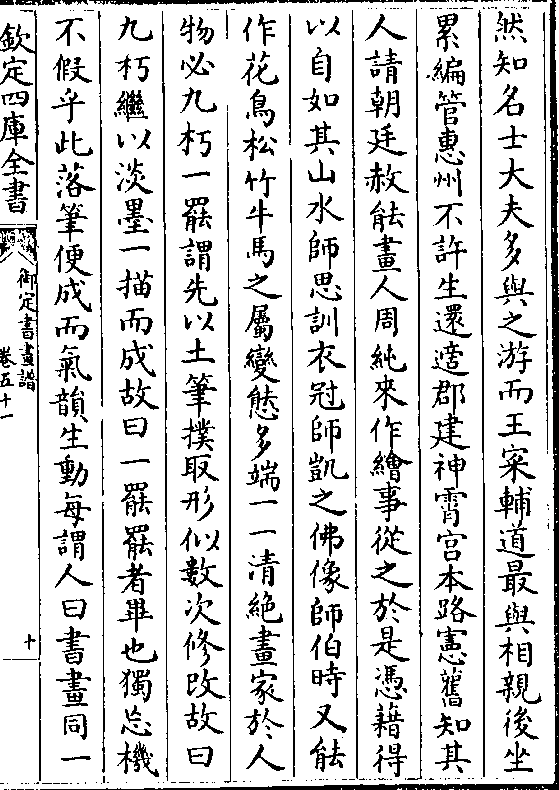 然知名士大夫多與之游而王寀輔道最與相親後坐
累編管惠州不許生還適郡建神霄宮本路憲舊知其
人請朝廷赦能畫人周純來作繪事從之於是憑藉得
以自如其山水師思訓衣冠師凱之佛像師伯時又能
作花鳥松竹牛馬之屬變態多端一一清絶畫家於人
物必九朽一罷謂先以土筆撲取形似數次修改故曰
九朽繼以淡墨一描而成故曰一罷罷者畢也獨忘機
不假乎此落筆便成而氣韻生動每謂人曰書畫同一
欽定四庫全書
御定書畫譜
卷五十一
十